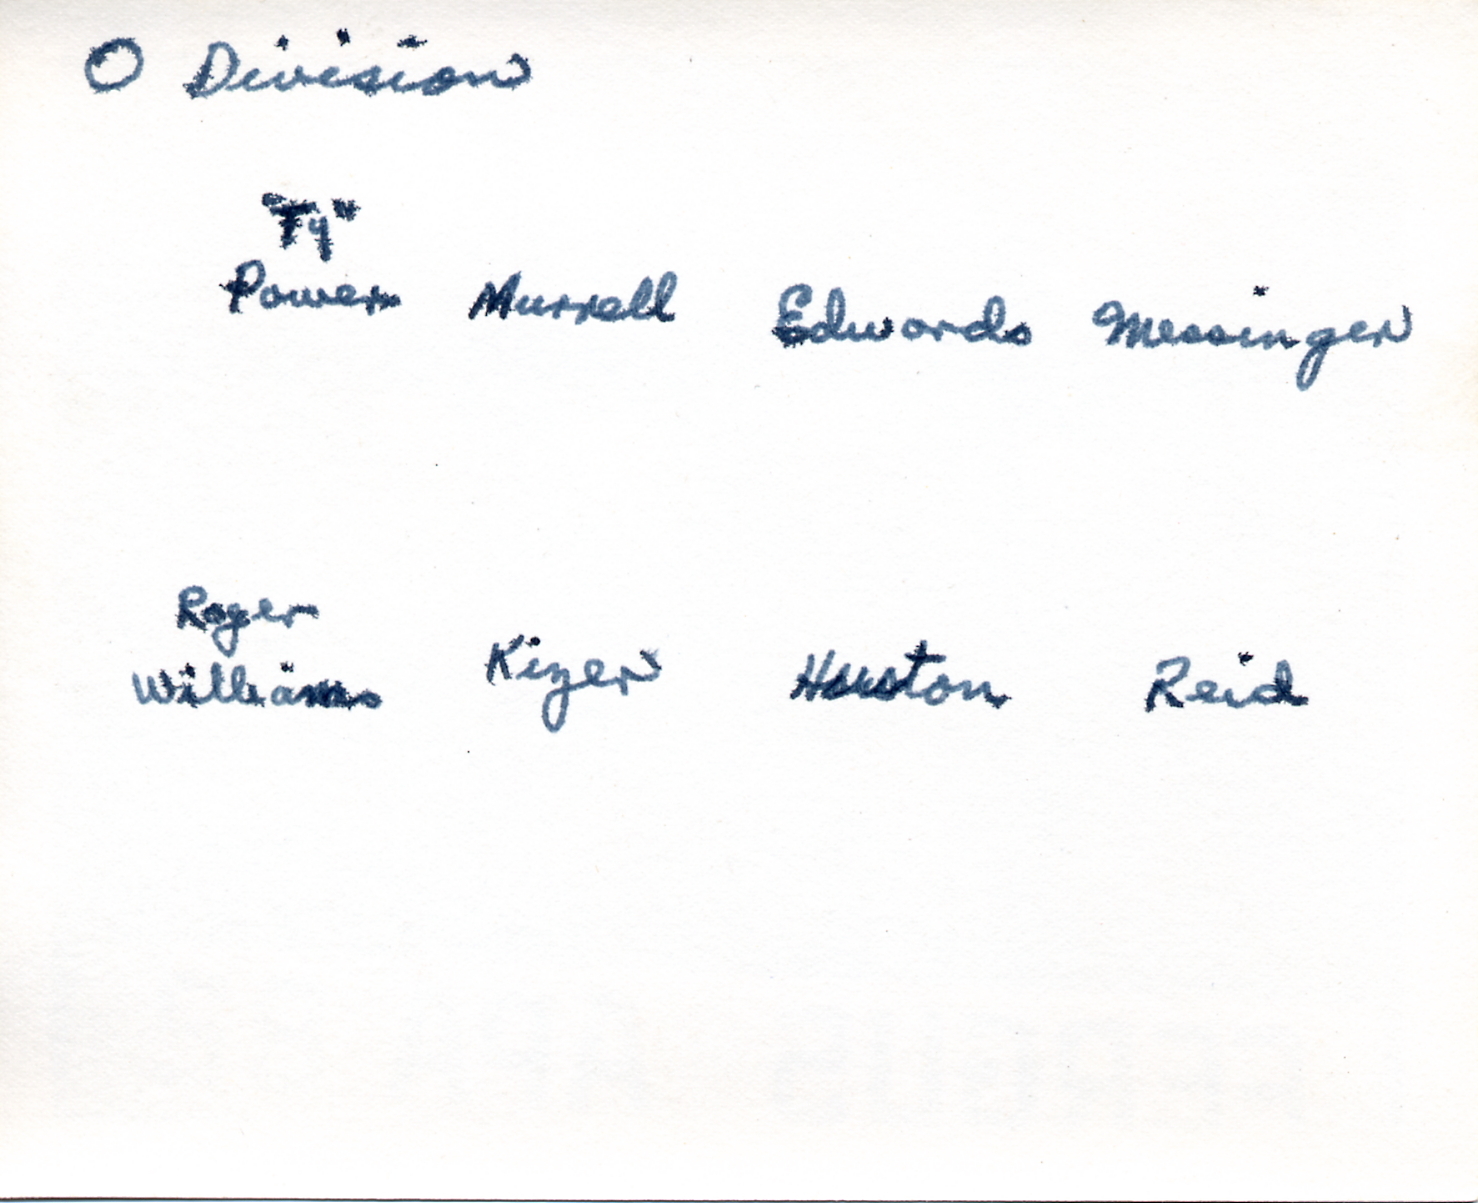 O Division
"Ty"
Power Murrell Edwards Messinger
Roger
Williams Kizer Huston Reid